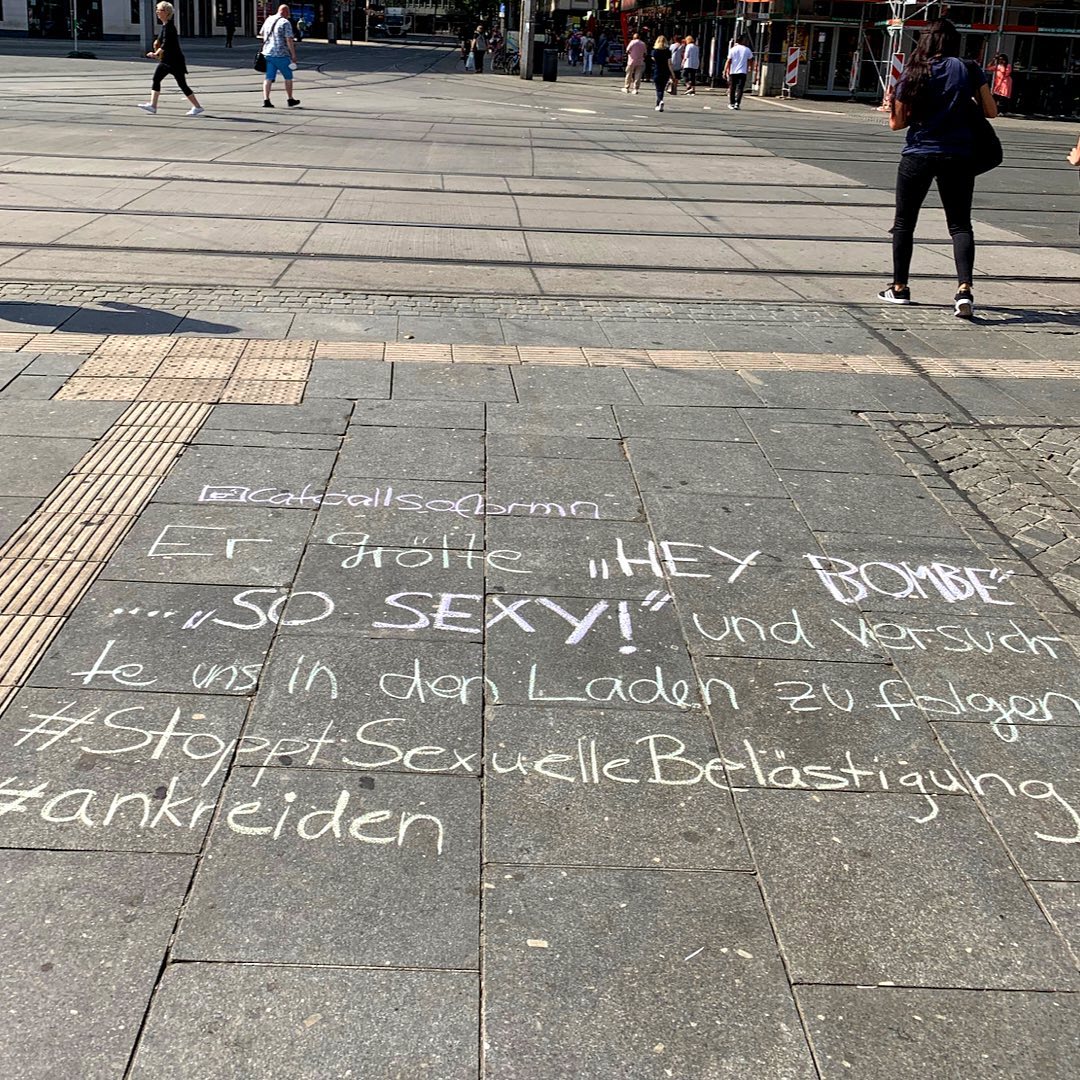 @catcallsofbrmn
Er grölte „HEY BOMBE"
....."SO SEXY!" und versuch
te uns in den Laden zu folgen
#StopptSexuelleBelästigung
#ankreiden